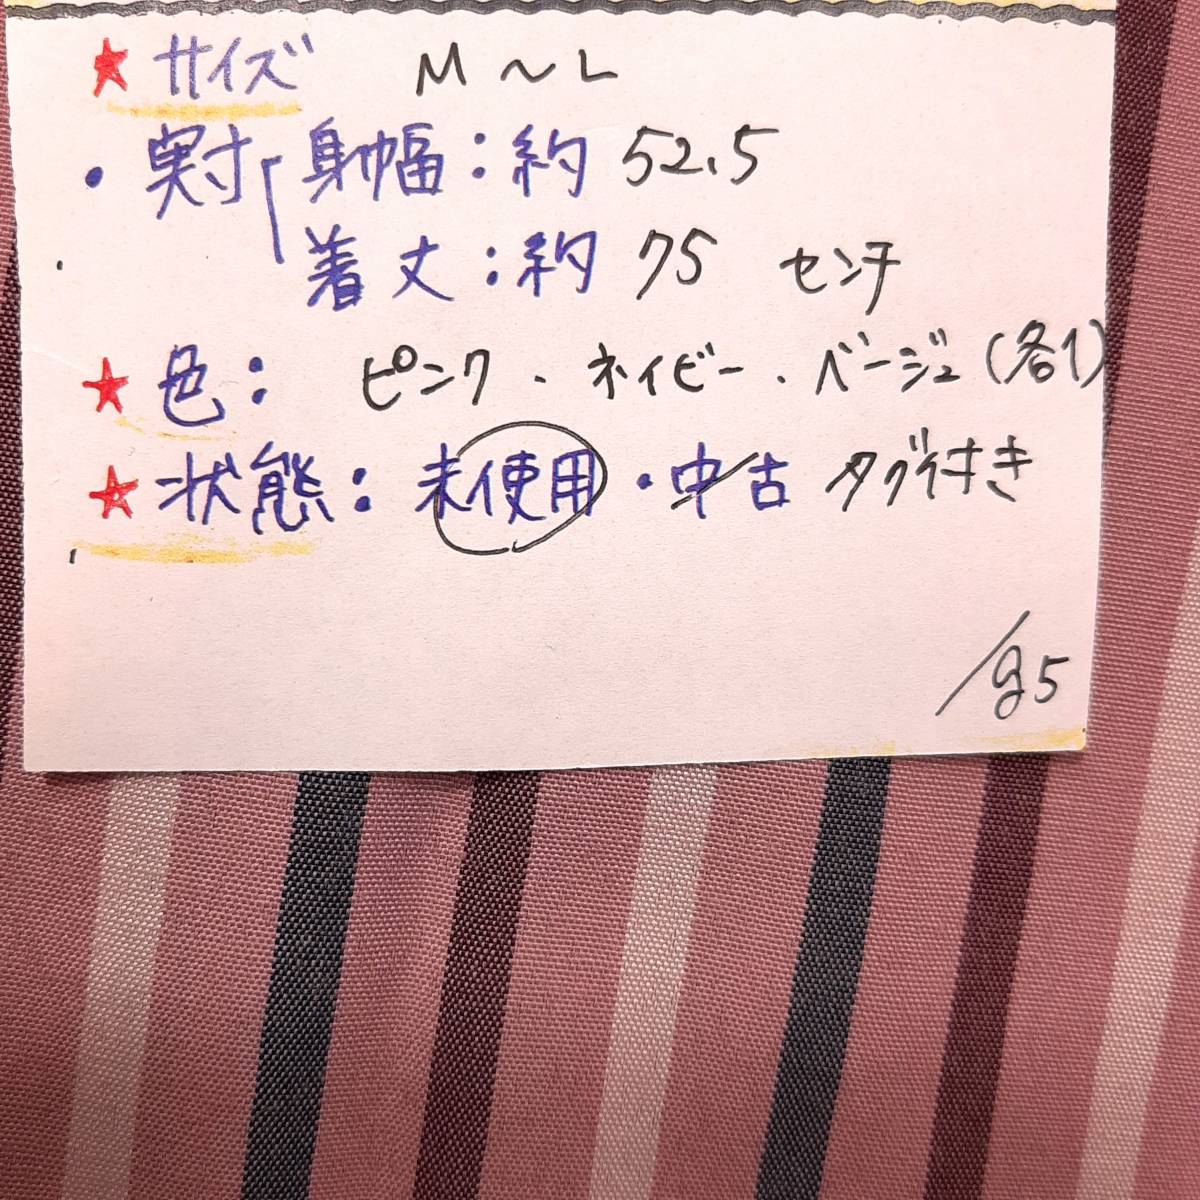 ★サイズ M〜L
・実寸「身幅：約 52.5
着丈：約 75 センチ
★色： ピンク・ネイビー・ベージュ(各1)
★状態：未使用・中古 タグ付き
/85